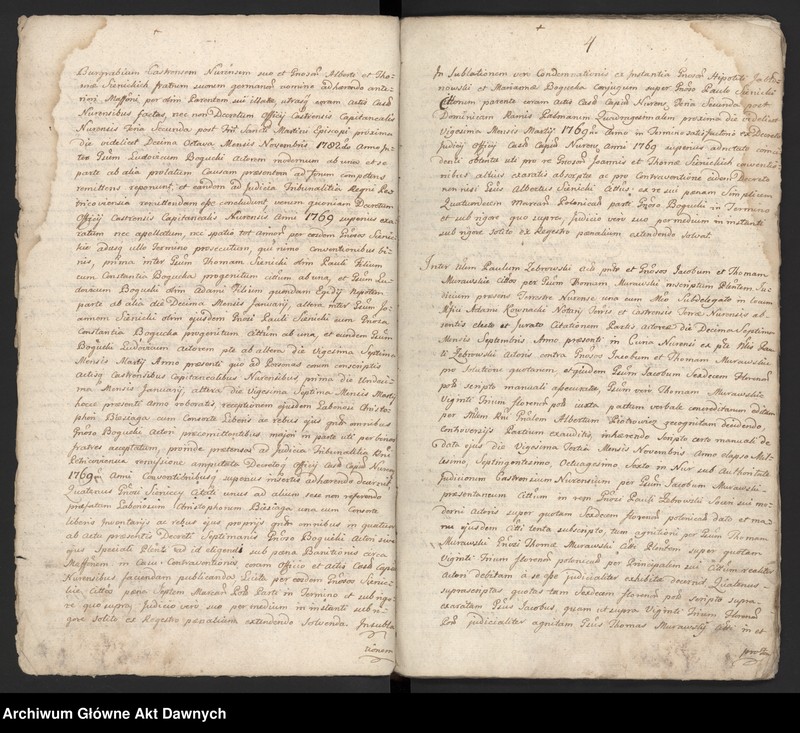 Burgrabium Castrensem Nurensem suo et Gnosor̃ Alberti et Tho-
mæ Sienickich fratrum suorum germanor̃ nomine adhærendo ante-
riori per olim Parentem sui illatæ, utrasq̃ coram Actis Casđ
Nurensibus factas, nec non Decretum Officij Castrensis Capitanealis
Nurensis Feria Secunda post Sancti Martini Episcopi proxima
die videlicet Decima Octava Mensis Novembris 1782do Anno
Ludovicum Bogucki Actorem modernum ab una et se
parte ab alia prolatum Causam præsentem ad forum competens
remittens reponunt, et eandem ad Judicia Tribunalitia Regni
remittendam esse concludunt, verum quoniam Decretum
Officij Castrensis Capitanealis Nurensis Anni 1769 superius exa-
ratum nec apellatum, nec spatio tot annor̃ per eosdem Gnosos Sienic-
kie adusq̃ ullo Termino prosecutum, qui nimo conventionibus bi-
nis, prima inter Thomam Sienicki olim Pauli Filium
cum Constantia Bogucka progenitum Citatum ab una, et
dovicum Bogucki olim Adami Filium quondam Egidij Nepotem
parte ab alia die Decima Mensis Januarij, altera inter Jo-
annem Sienicki olim ejusdem Pauli Sienicki cum
Constantia Bogucka progenitum Citatum ab una, et eundem
Bogucki Ludovicum Actorem pte ab altera die Vigesima Septima
Mensis Martij Anno præsenti quo ad Personas eorum conscriptis
Actisq̃ Castrensibus Capitanealibus Nurensibus prima die Undeci-
ma Mensis Januarij altera die Vigesima Septima Mensis Martij
hocce præsenti Anno roboratis receptionem ejusdem Laboriosi Christo-
phori Biesiaga cum Consorte Liberis ac rebus ejus omnibus
Bogucki Actori præcommittentibus, majori in parte uti per binos
fratres acceptatum, proinde prætensa ad Judicia Tribunalitia
remissione amputata Decretoq̃ Officij Casđ Capđ Nuren̄
1769no Anni Conventionibusq̃ superius insertis adhærendo decrevit,
Quatenus Sieniccy Citati unus ad alium sese non referendo
præfatum Laboriosum Christophorum Biesiaga una cum Consorte
liberis Inventarijs ac rebus ejus proprijs omnibus in quatuor
ab Actu præsentis Decreti Septimanis Bogucki Actori sive
ejus Speciali ad id eligendo sub pæna Bannitionis circa
in Casu Contraventionis coram Officio et Actis Casđ Capđ
Nurensibus faciendam publicandaq̃ per eosdem Sienic-
kie, Citatos pæna Septem Marcar̃ Parti in Termino et sub rigo-
re quo supra, Judicio vero suo per medium in instanti sub ri-
gore solito ex Regestro pænalium extendendo Solvenda. Insubla
tionem
4
In Sublationem vero Condemnationis ex Instantia Gnosor̃ Hipoliti
nowski et Mariannæ Bogucka Conjugum super Paulo Sienicki
Citatorum parente coram Actis Casđ Capđ Nurens̃ Feria Secunda post
Dominicam Ramis Palmarum Quadragesimalem proxima die videlicet
Vigesima Mensis Martij 1769no Anno in Termino satisfactionis ex Decreto
Judicij Officij Casđ Capđ Nuren̄ Anni 1769 superius adnotato
denti obtenta uti pro re Gnosor̃ Joannis et Thomæ Sienickich conventio-
nibus altius exaratis absorpta ac pro Contraventione eidem Decreto
non nisi Albertus Sienicki Citatus, ex re sui pænam Simplicem
Quatuordecim Marcar̃ Polonicar̃ parti Bogucki in Termino
et sub rigore quo supra, Judicio vero suo per medium in instanti
sub rigore solito ex Regestro pænalium extendendo solvat.
Inter Paulum Zebrowski et Gnosos Jacobum et Thomam
Murawskie Citatos per Thomam Murawski
dicium præsens Terrestre Nurense una cum Subdelegato in locum
Adami Notarij Terris et Castrensis Terræ Nurensis ab-
sentis electo et Jurato Citationem Partis Actoreæ die Decima Septima
Mensis Septembris Anno præsenti in Curia Nurensi ex pte
li Zebrowski Actoris contra Gnosos Jacobum et Thomam Murawskie
pro Solutione quotarum, et quidem Jacobum Sexdecem Florenor̃
scripto manuali apocatæ, vero Thomam Murawskie
Viginti Trium florenor̃ juxta pactum verbale concreditarum editam
per Albertum Piotrowicz recognitam decidendo,
Controversijs Partium exauditis, inhærendo Scripto certo manuali de
data ejus die Vigesima Tertia Mensis Novembris Anno elapso Mil-
lesimo, Septingentesimo, Octuagesimo Sexto in Nur sub Authoritate
Judiciorum Castrensium Nurensium per Jacobum Murawski
præsentaneum Citatum in rem Pauli Zebrowski Soceri sui mo-
derni Actoris super quotam Sexdecem florenor̃ polonicar̃ dato et ma-
nu ejusdem Citati tenta subscripto, tum agnitioni per Thomam
Murawski Thomæ Murawski Citati super quotam
Viginti Trium florenor̃ polonicor̃ per Principalem sui Citatum realiter
Actori debitam a se esse judicialiter exhibitæ decernit Quatenus
suprascriptas quotas tam Sexdecem florenor̃ Scripto supra
exaratam Jacobus, quam ut supra Viginti Trium Florenor̃
judicialiter agnitam Thomas Murawskij Citati in et
Archiwum Główne Akt Dawnych